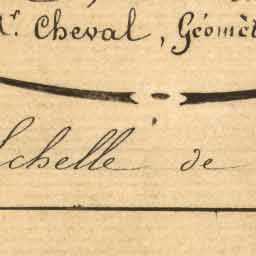 Mr. Cheval, Géomèt
Echelle de